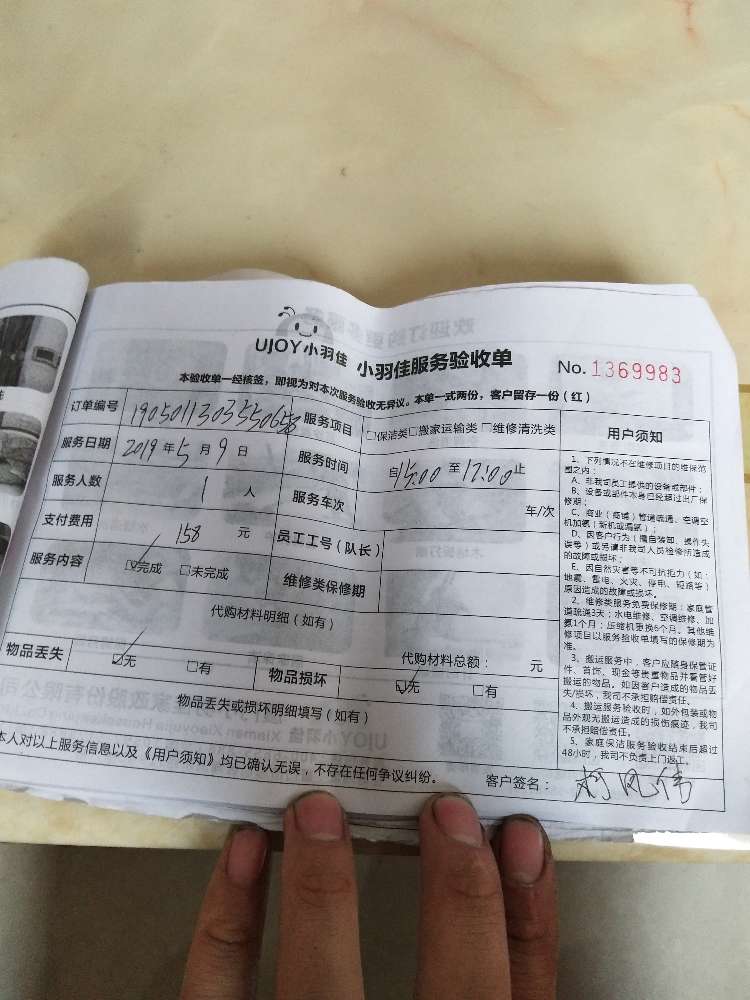 UJOY小羽佳 小羽佳服务验收单 No. 1369983
本验收单一经核签，即视为对本次服务验收无异议。本单一式两份，客户留存一份（红）
订单编号 服务项目 □保洁类□搬家运输类 □维修清洗类
服务日期 2019 年 5 月 9 日 服务时间 自 15:00 至 17:00 止
服务人数 1 人 服务车次 车/次
支付费用 158 元 员工工号（队长）
服务内容 ☑完成 □未完成 维修类保修期
代购材料明细（如有）
代购材料总额： 元
物品丢失 ☑无 □有 物品损坏 ☑无 □有
物品丢失或损坏明细填写（如有）
本人对以上服务信息以及《用户须知》均已确认无误，不存在任何争议纠纷。
客户签名：
用户须知
1、下列情况不在维修项目的维保范
围之内：
A、非我司员工提供的设备或部件；
B、设备或部件本身已经超过出厂保
修期；
C、商业（商铺）管道疏通、空调空
机加氨（新机或漏氨）；
D、因客户行为（擅自装卸、操作失
误等）或另请非我司人员检修所造成
的故障或损坏；
E、因自然灾害等不可抗拒力（如：
地震、雷电、火灾、停电、短路等）
原因造成的故障或损坏。
2、维修类服务免费保修期：家庭管
道疏通3天；水电维修、空调维修、加
氨1个月；压缩机更换6个月。其他维
修项目以服务验收单填写的保修期为
准。
3、搬运服务中，客户应随身保管证
件、首饰、现金等贵重物品并看管好
搬运的物品。如因客户造成的物品丢
失/损坏，我司不承担赔偿责任。
4、搬运服务验收时，如外包装或物
品外观无搬运造成的损伤痕迹，我司
不承担赔偿责任。
5、家庭保洁服务验收结束后超过
48小时，我司不负责上门返工。